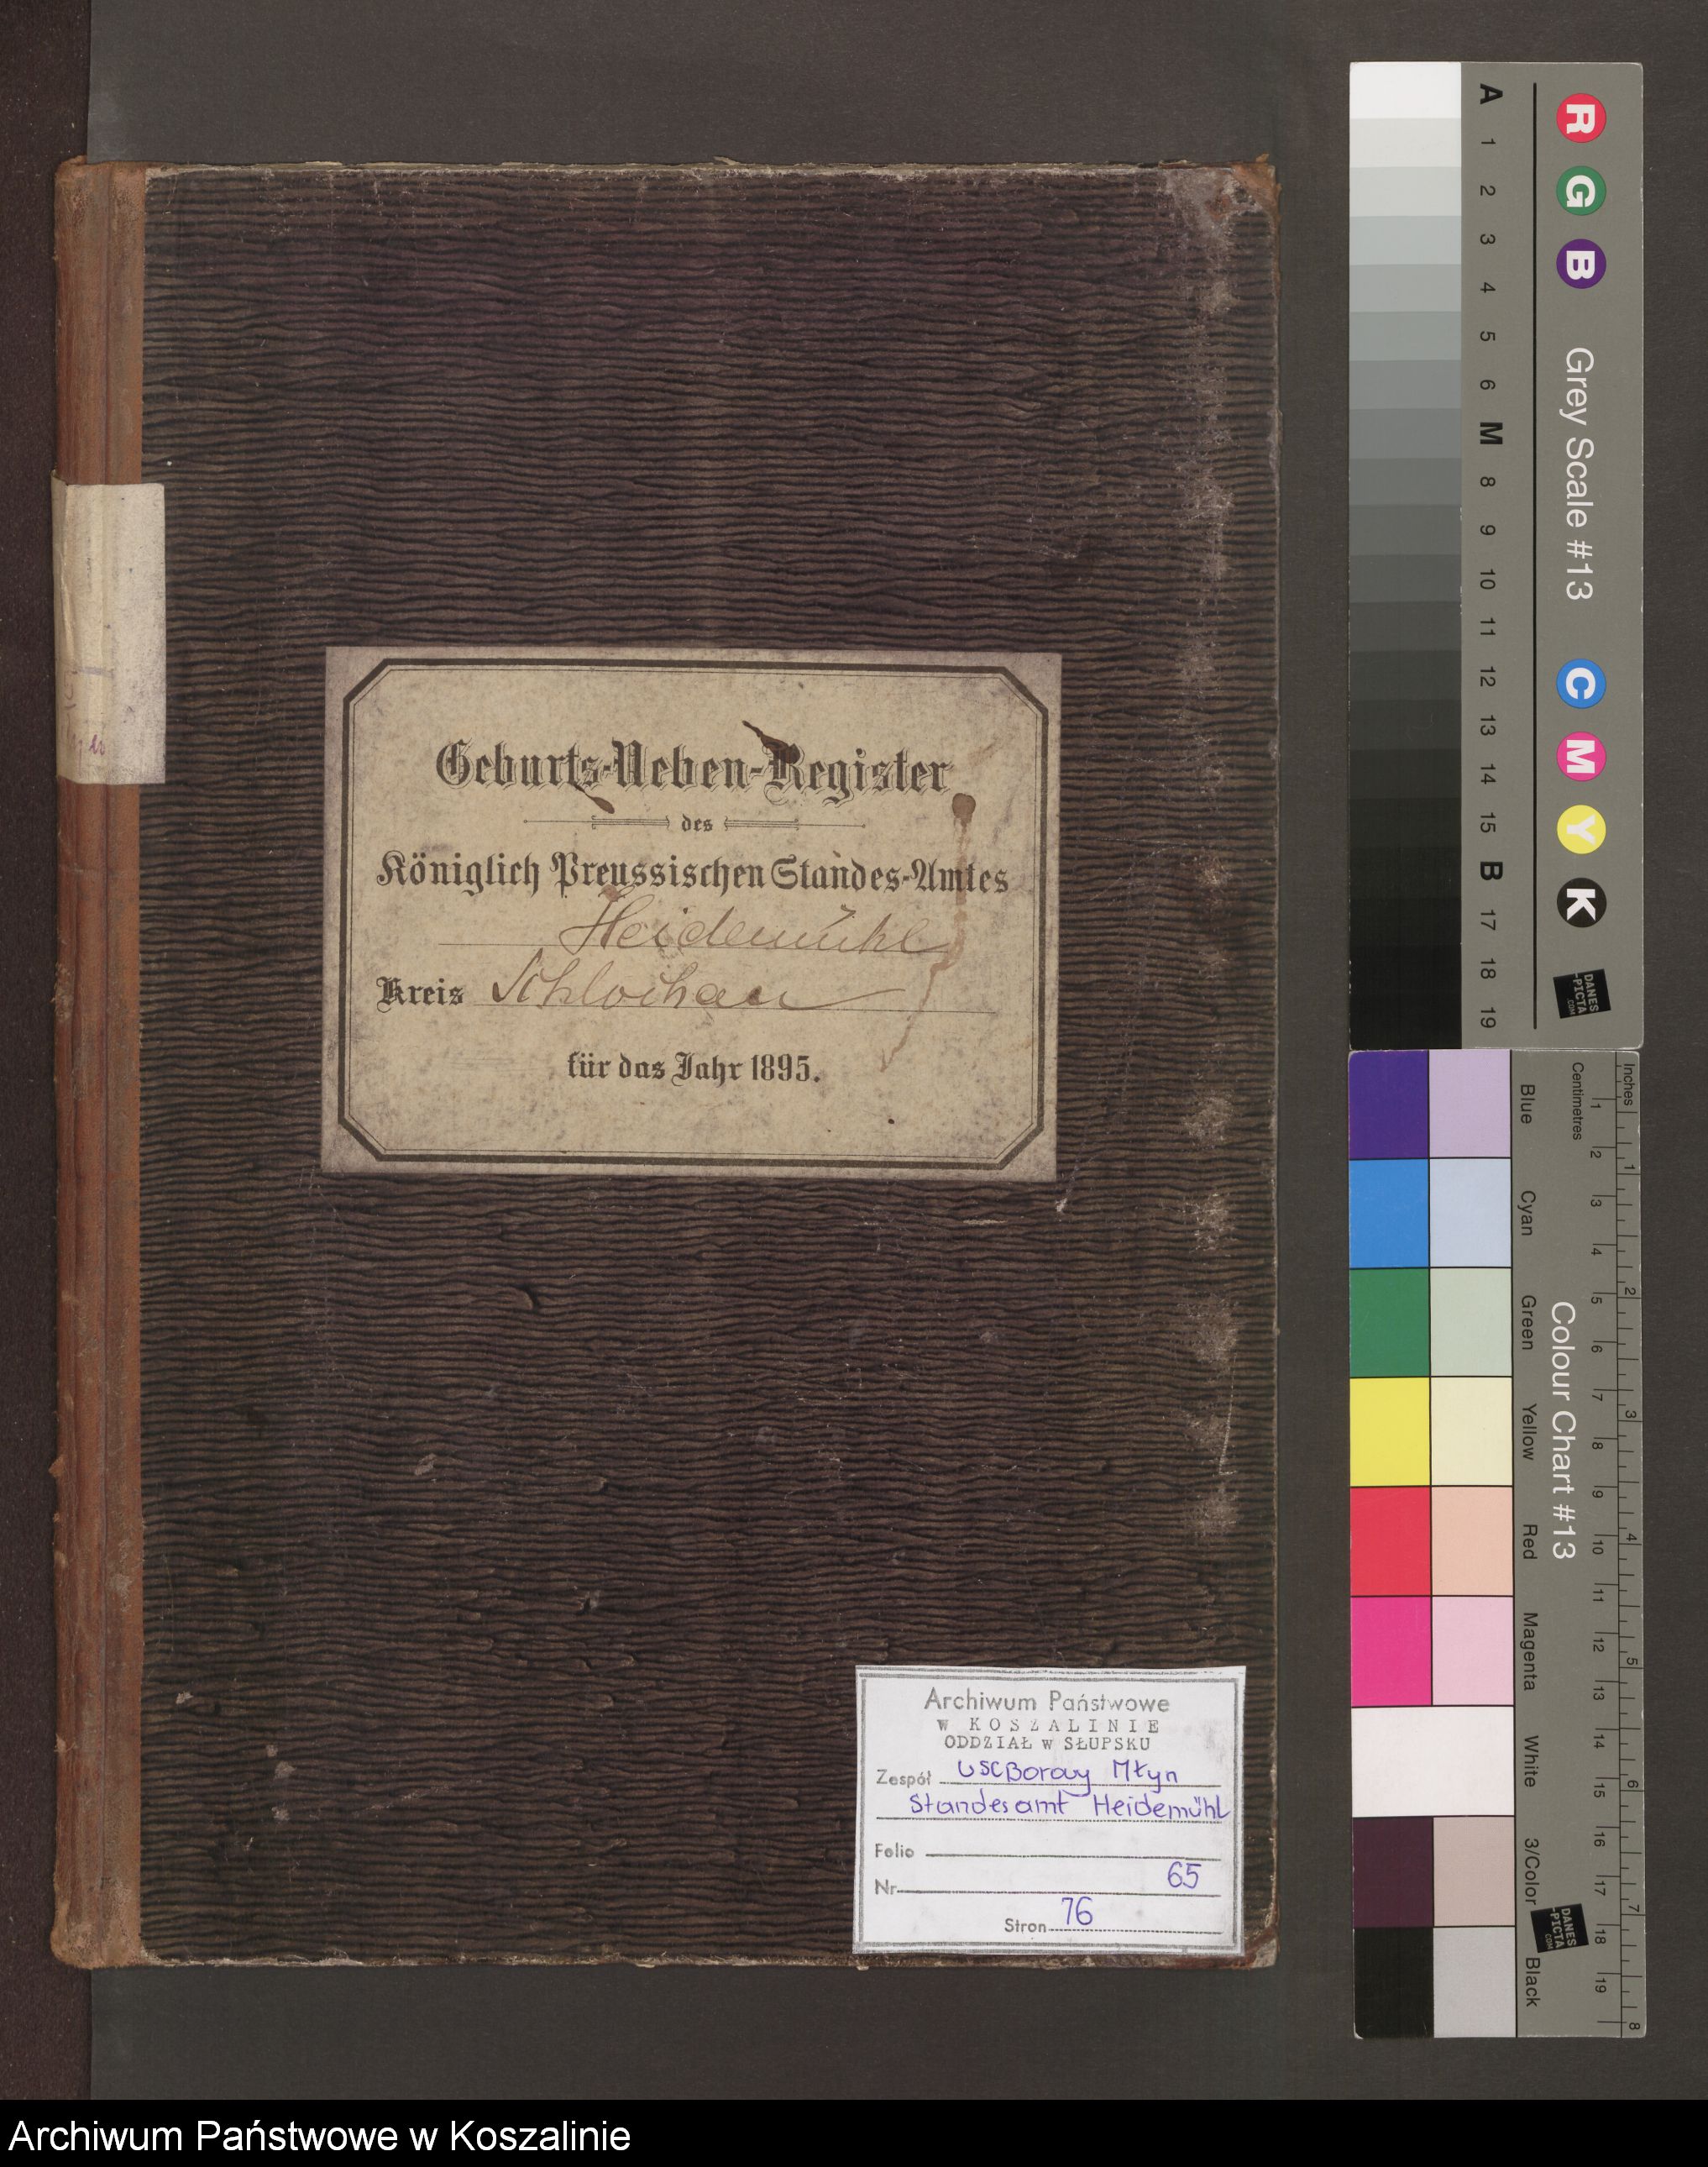 Geburts-Neben-Register
des
Königlich Preussischen Standes-Amtes
Heidemühl
Kreis Schlochau
für das Jahr 1895.
Archiwum Państwowe
W KOSZALINIE
ODDZIAŁ w SŁUPSKU
Zespół USC Borowy Młyn
Standesamt Heidemühl
Folio
Nr 65
Stron 76
A 1 2 3 4 5 6 M 8 9 10 11 12 13 14 15 B 17 18 19
R G B Grey Scale #13 C M Y K
DANES
-PICTA
.COM
Blue Cyan Green Yellow Red Magenta White 3/Color Black
Colour Chart #13
DANES
-PICTA
.COM
Centimetres 1 2 3 4 5 6 7 8 9 10 11 12 13 14 15 16 17 18 19
Inches 1 2 3 4 5 6 7 8
Archiwum Państwowe w Koszalinie